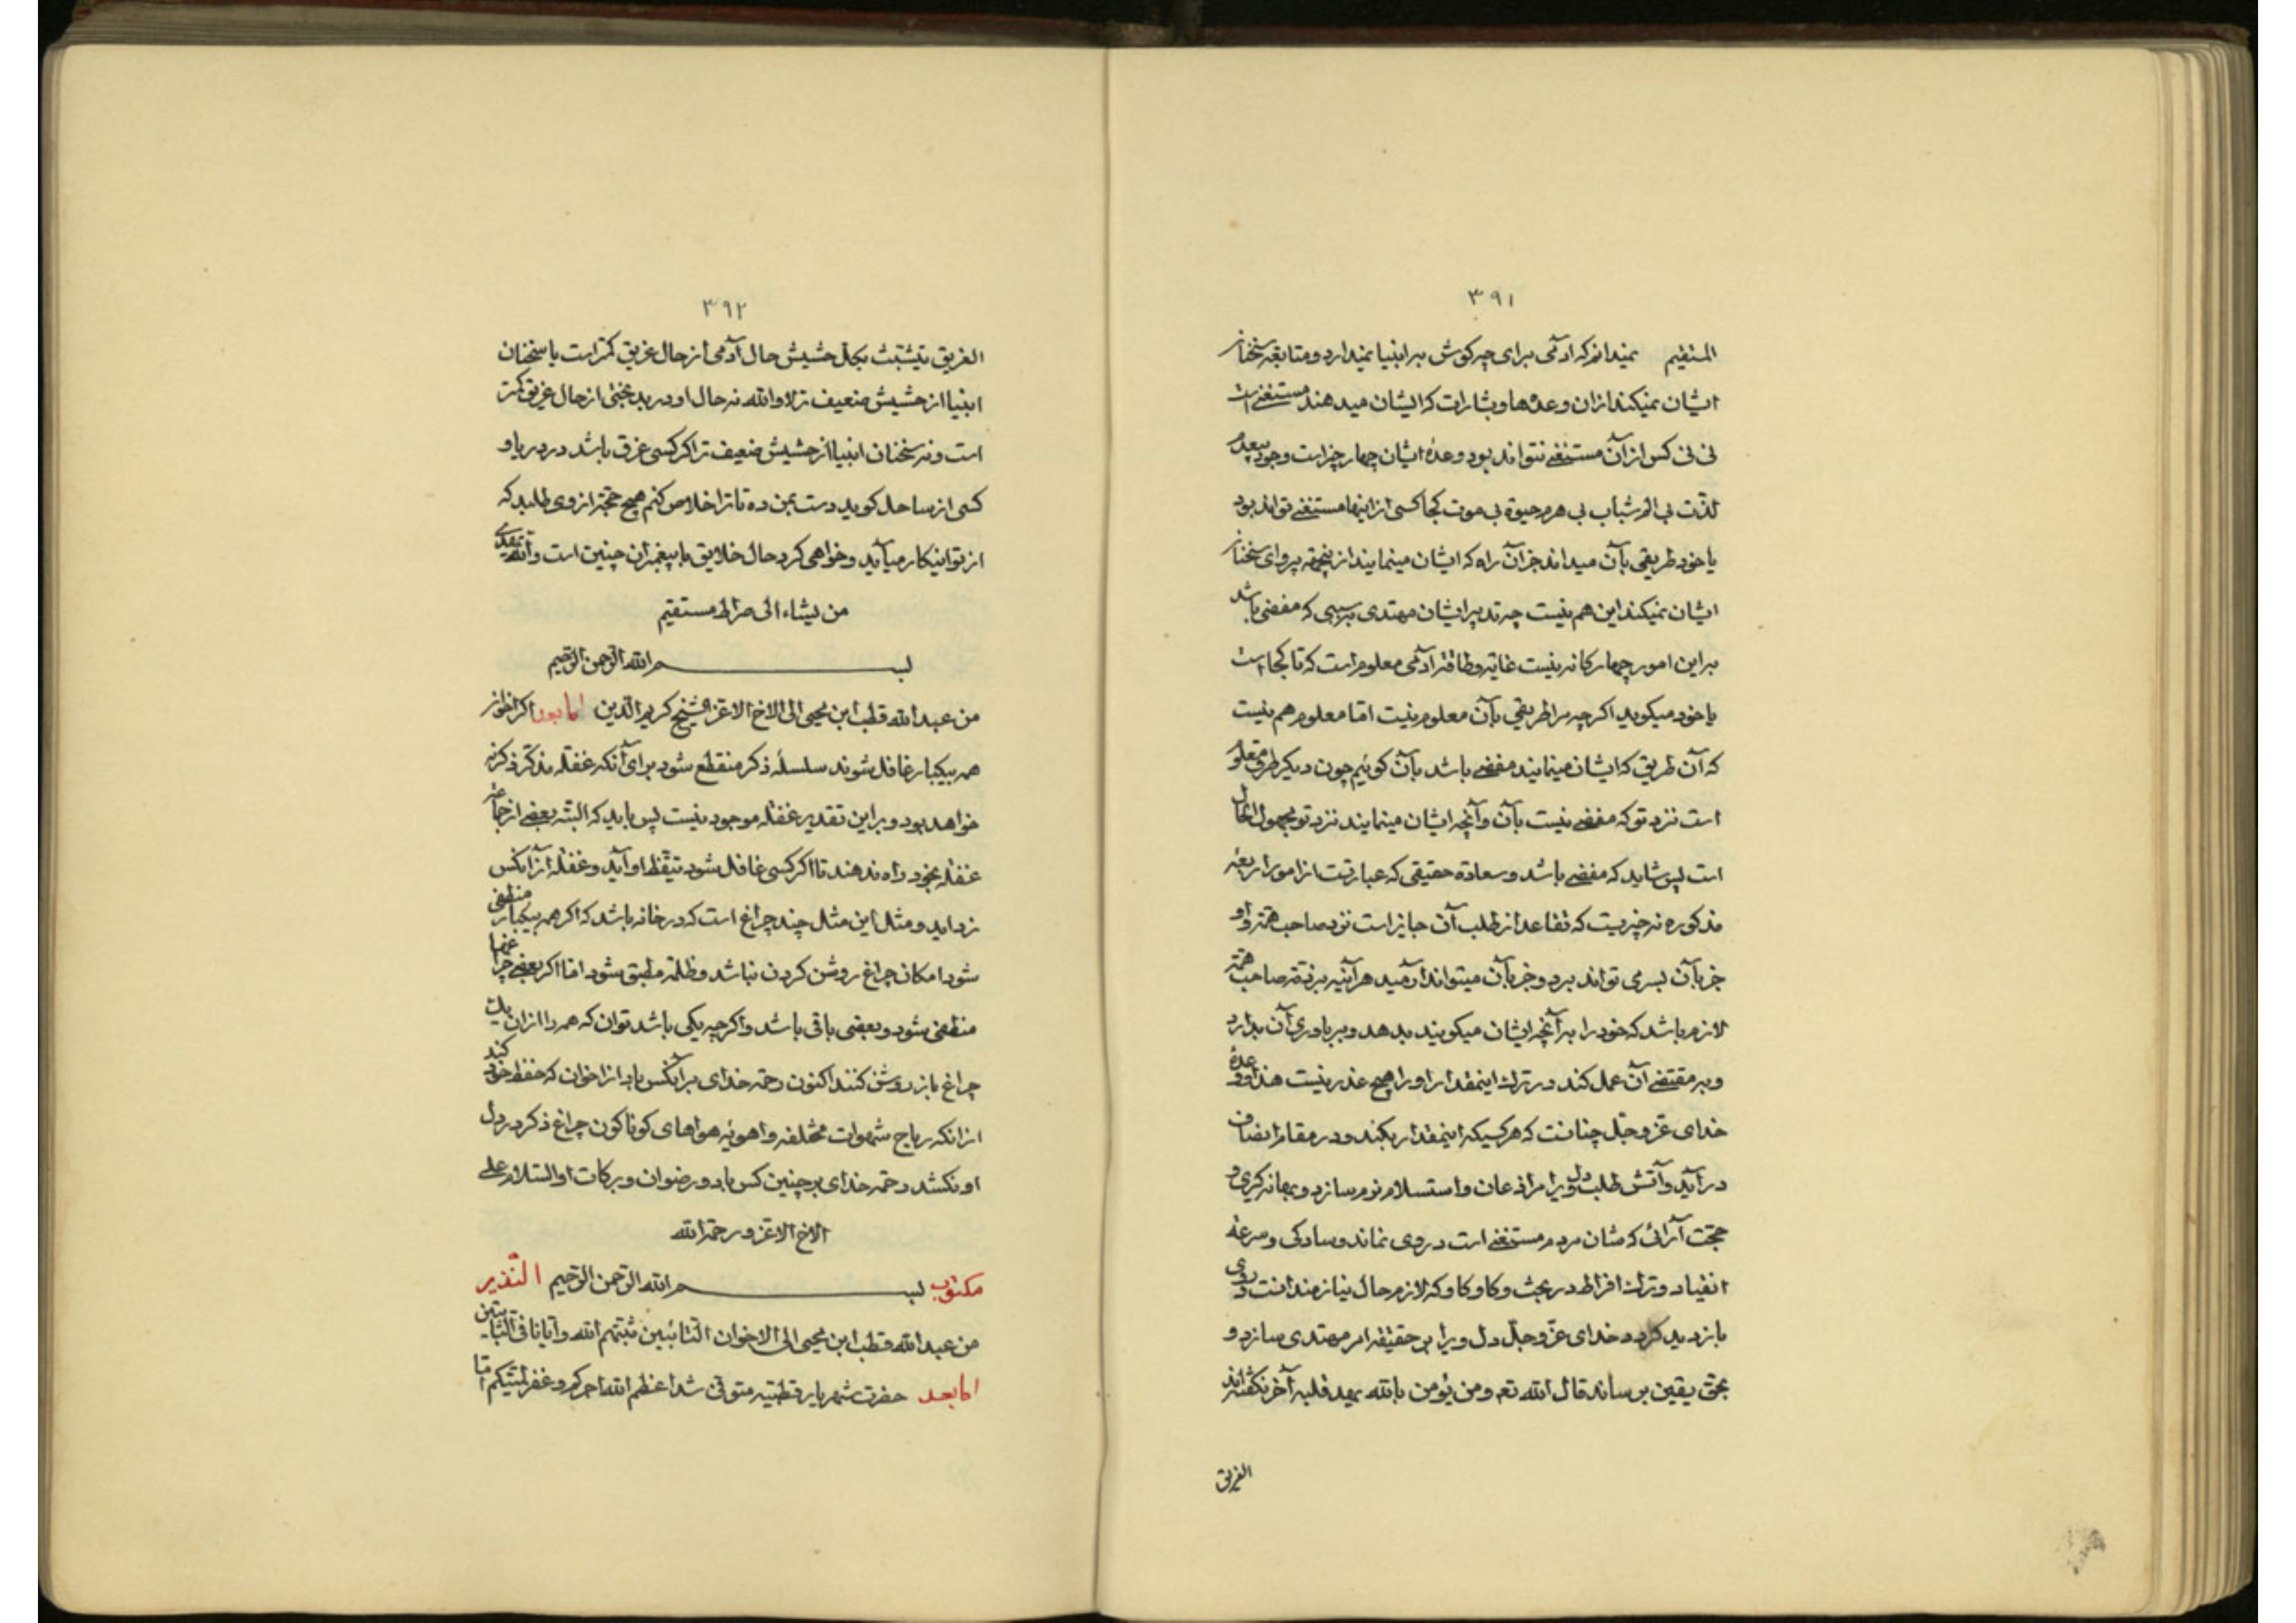 ٣٩١
المستقیم نمیدانم که آدمی برای چه کوش بر انبیا نمیدارد و متابعة سخنان
ایشان نمیکند از ان وعدها و بشارات که ایشان میدهند مستغنی است
نی نی کس از آن مستغنی نتواند بود وعدهٔ ایشان چهار چیز است وجود بیعدم
لذّت بی الم شباب بی هرم حیوة بی موت کجا کسی از اینها مستغنی تواند بود
یا خود طریقی بآن میداند جز آن راه که ایشان مینمایند از ینجهة پروای سخنان
ایشان نمیکند این هم نیست چه تدبیر ایشان مهتدی بسببی که مفضی باشد
بر این امور چهارکانه نیست غایة و طاقة آدمی معلوم است که تا کجا است
یا خود میکوید اکرچه مرا طریقی بآن معلوم نیست امّا معلوم هم نیست
که آن طریق که ایشان مینمایند مفضی باشد بآن کوئیم چون دیکر طرق معلوم
است نزد تو که مفضی نیست بآن و آنچه ایشان مینمایند نزد تو مجهول الحال
است پس شاید که مفضی باشد و سعادة حقیقی که عبارتست از امور اربعهٔ
مذکوره نه چیزیست که تقاعد از طلب آن جایز است نزد صاحب همّة و او
جز بآن بسر می تواند برد و جز بآن میتواند آرمید هر آینه بر ذمّة صاحب همّة
لازم باشد که خود را بر آنچه ایشان میکویند بدهد و بر باوری آن بدارد
و بر مقتضی آن عمل کند در ترک اینمقدار او را هیچ عذر نیست هذا و وعدهٔ
خدای عزّ و جلّ چنانست که هر کسیکه اینمقدار بکند و در مقام انصاف
در آید و آتش طلب دل ویرا مر اذعان و استسلام نرم سازد و بهانه کری و
حجّت آرائی که شان مردم مستغنی است در وی نماند و سادکی و سرعة
انقیاد و ترک افراط در بحث و کاوکاو که لازم حال نیازمندانست در وی
بازدید کردد خدای عزّ و جلّ دل ویرا بر حقیقة امر مهتدی سازد و
بحق یقین برساند قال الله تع و من یؤمن بالله یهد قلبه آخر نکفته‌اند
الغریق
٣٩٢
الغریق یتشبّث بکلّ حشیش حال آدمی از حال غریق کمتر است یا سخنان
انبیا از حشیش ضعیف تر لا والله نه حال او در بدبختی از حال غریق کمتر
است و نه سخنان انبیا از حشیش ضعیف تر اکر کسی غرق باشد در دریا و
کسی از ساحل کوید دست بمن ده تا ترا خلاص کنم هیچ حجّة از وی طلبد که
از تو اینکار میآید و خواهی کرد حال خلایق با پیغمبران چنین است والله یهدی
من یشاء الی صراط مستقیم
بسم الله الرّحمن الرّحیم
من عبدالله قطب ابن یحیی الی الاخ الاعزّ الشیخ کریم الدّین امّا بعد اکر اخوان
همه بیکبار غافل شوند سلسلهٔ ذکر منقطع شود برای آنکه غفلة مذکّر ذکر نه
خواهد بود و بر این تقدیر غفلة موجود نیست پس باید که البتّه بعضی از جماعة
غفلة بخود راه ندهند تا اکر کسی غافل شود تیقّظ او آید و غفلة از آنکس
زداید و مثل این مثل چند چراغ است که در خانه باشد که اکر همه بیکبار منطفی
شود امکان چراغ روشن کردن نباشد و ظلمة مطبق شود امّا اکر بعضی چراغها
منطفی شود و بعضی باقی باشد و اکرچه یکی باشد توان که همه را از ان یک
چراغ باز روشن کنند اکنون رحمة خدای بر آنکس باد از اخوان که حفظ خود کند
از انکه ریاح شهوات مختلفه و اهویهٔ هواهای کوناکون چراغ ذکر در دل
او نکشد رحمة خدای بر چنین کس باد و رضوان و برکات او والسّلام علی
الاخ الاعزّ و رحمة الله
مکتوب بسم الله الرّحمن الرّحیم النّذیر
من عبدالله قطب ابن یحیی الی الاخوان التّائبین ثبّتهم الله و ایّانا فی الثّابتین
امّا بعد حضرت شهریار قطبیّه متوفّی شد اعظم الله اجرکم و غفر لمیّتکم امّا